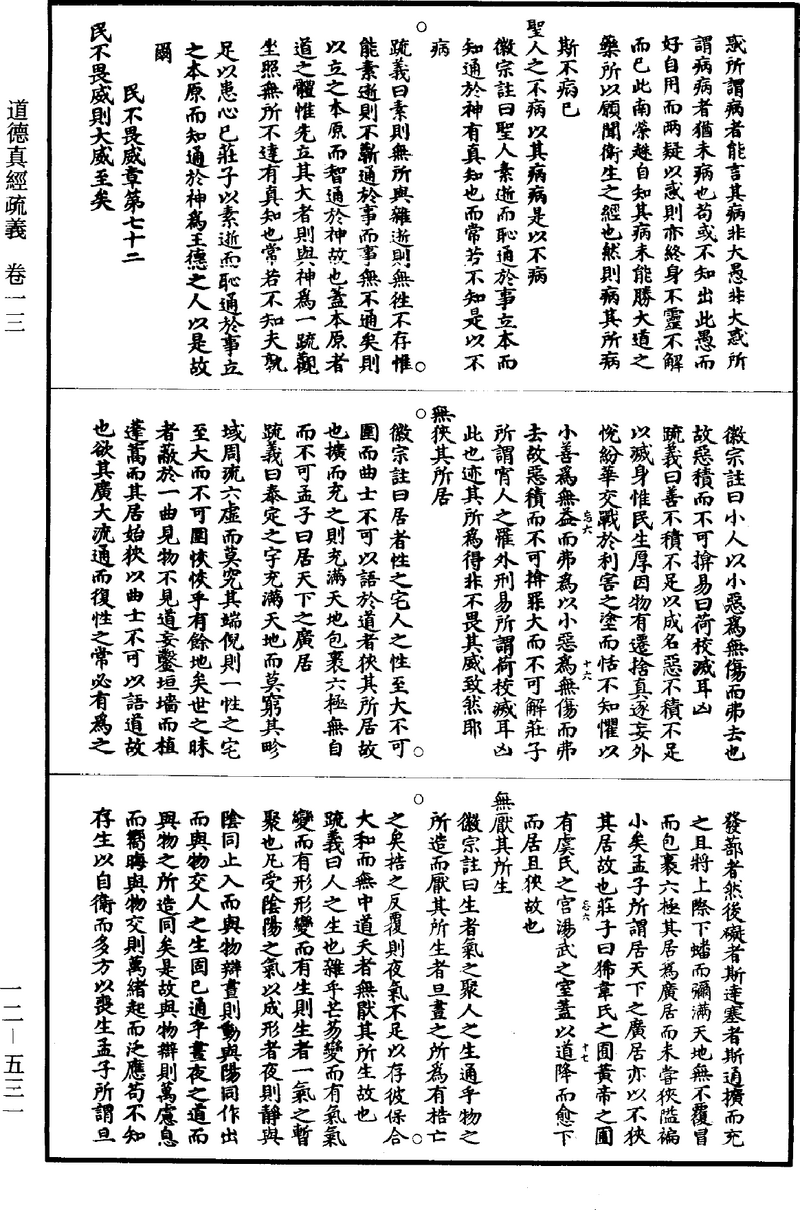 道德真經疏義　卷一三
惑所謂病者能言其病非大愚非大惑所
謂病病者猶未病也苟或不知出此愚而
好自用而兩疑以惑則亦終身不靈不解
而已此南榮趎自知其病未能勝大道之
藥所以願聞衛生之經也然則病其所病
斯不病已
聖人之不病以其病病是以不病
徽宗註曰聖人素逝而恥通於事立本而
知通於神有真知也而常若不知是以不
病
疏義曰素則無所與雜逝則無徃不存惟
能素逝則不蘄通於事而事無不通矣則
以立之本原而智通於神故也蓋本原者
道之體惟先立其大者則與神為一疏觀
坐照無所不達有真知也常若不知夫孰
足以患心已莊子以素逝而恥通於事立
之本原而知通於神為王德之人以是故
爾
民不畏威章第七十二
民不畏威則大威至矣
徽宗註曰小人以小惡為無傷而弗去也
故惡積而不可揜易曰荷校滅耳凶
疏義曰善不積不足以成名惡不積不足
以滅身惟民生厚因物有遷捨真逐妄外
悅紛華交戰於利害之塗而恬不知懼以
小善為無益而弗為以小惡為無傷而弗
去故惡積而不可揜罪大而不可解莊子
所謂宵人之罹外刑易所謂荷校滅耳凶
此也迹其所為得非不畏其威致然耶
無狹其所居
徽宗註曰居者性之宅人之性至大不可
圍而曲士不可以語於道者狹其所居故
也擴而充之則充滿天地包裹六極無自
而不可孟子曰居天下之廣居
疏義曰泰定之宇充滿天地而莫窮其畛
域周流六虛而莫究其端倪則一性之宅
至大而不可圍恢恢乎有餘地矣世之昧
者蔽於一曲見物不見道妄鑿垣墻而植
蓬蒿而其居始狹以曲士不可以語道故
也欲其廣大流通而復性之常必有為之
發蔀者然後礙者斯達塞者斯通擴而充
之且將上際下蟠而彌滿天地無不覆冒
而包裹六極其居為廣居而未嘗狹隘褊
小矣孟子所謂居天下之廣居亦以不狹
其居故也莊子曰狶韋氏之囿黃帝之圃
有虞氏之宮湯武之室蓋以道降而愈下
而居且狹故也
無厭其所生
徽宗註曰生者氣之聚人之生通乎物之
所造而厭其所生者旦晝之所為有梏亡
之矣梏之反覆則夜氣不足以存彼保合
大和而無中道夭者無厭其所生故也
疏義曰人之生也雜乎芒芴變而有氣氣
變而有形形變而有生則生者一氣之暫
聚也凡受陰陽之氣以成形者夜則靜與
陰同止入而與物辯晝則動與陽同作出
而與物交人之生固已通乎晝夜之道而
與物之所造同矣是故與物辯則萬慮息
而嚮晦與物交則萬緒起而泛應苟不知
存生以自衛而多方以喪生孟子所謂旦
忘六
十六
忘六
十七
一二－五三一